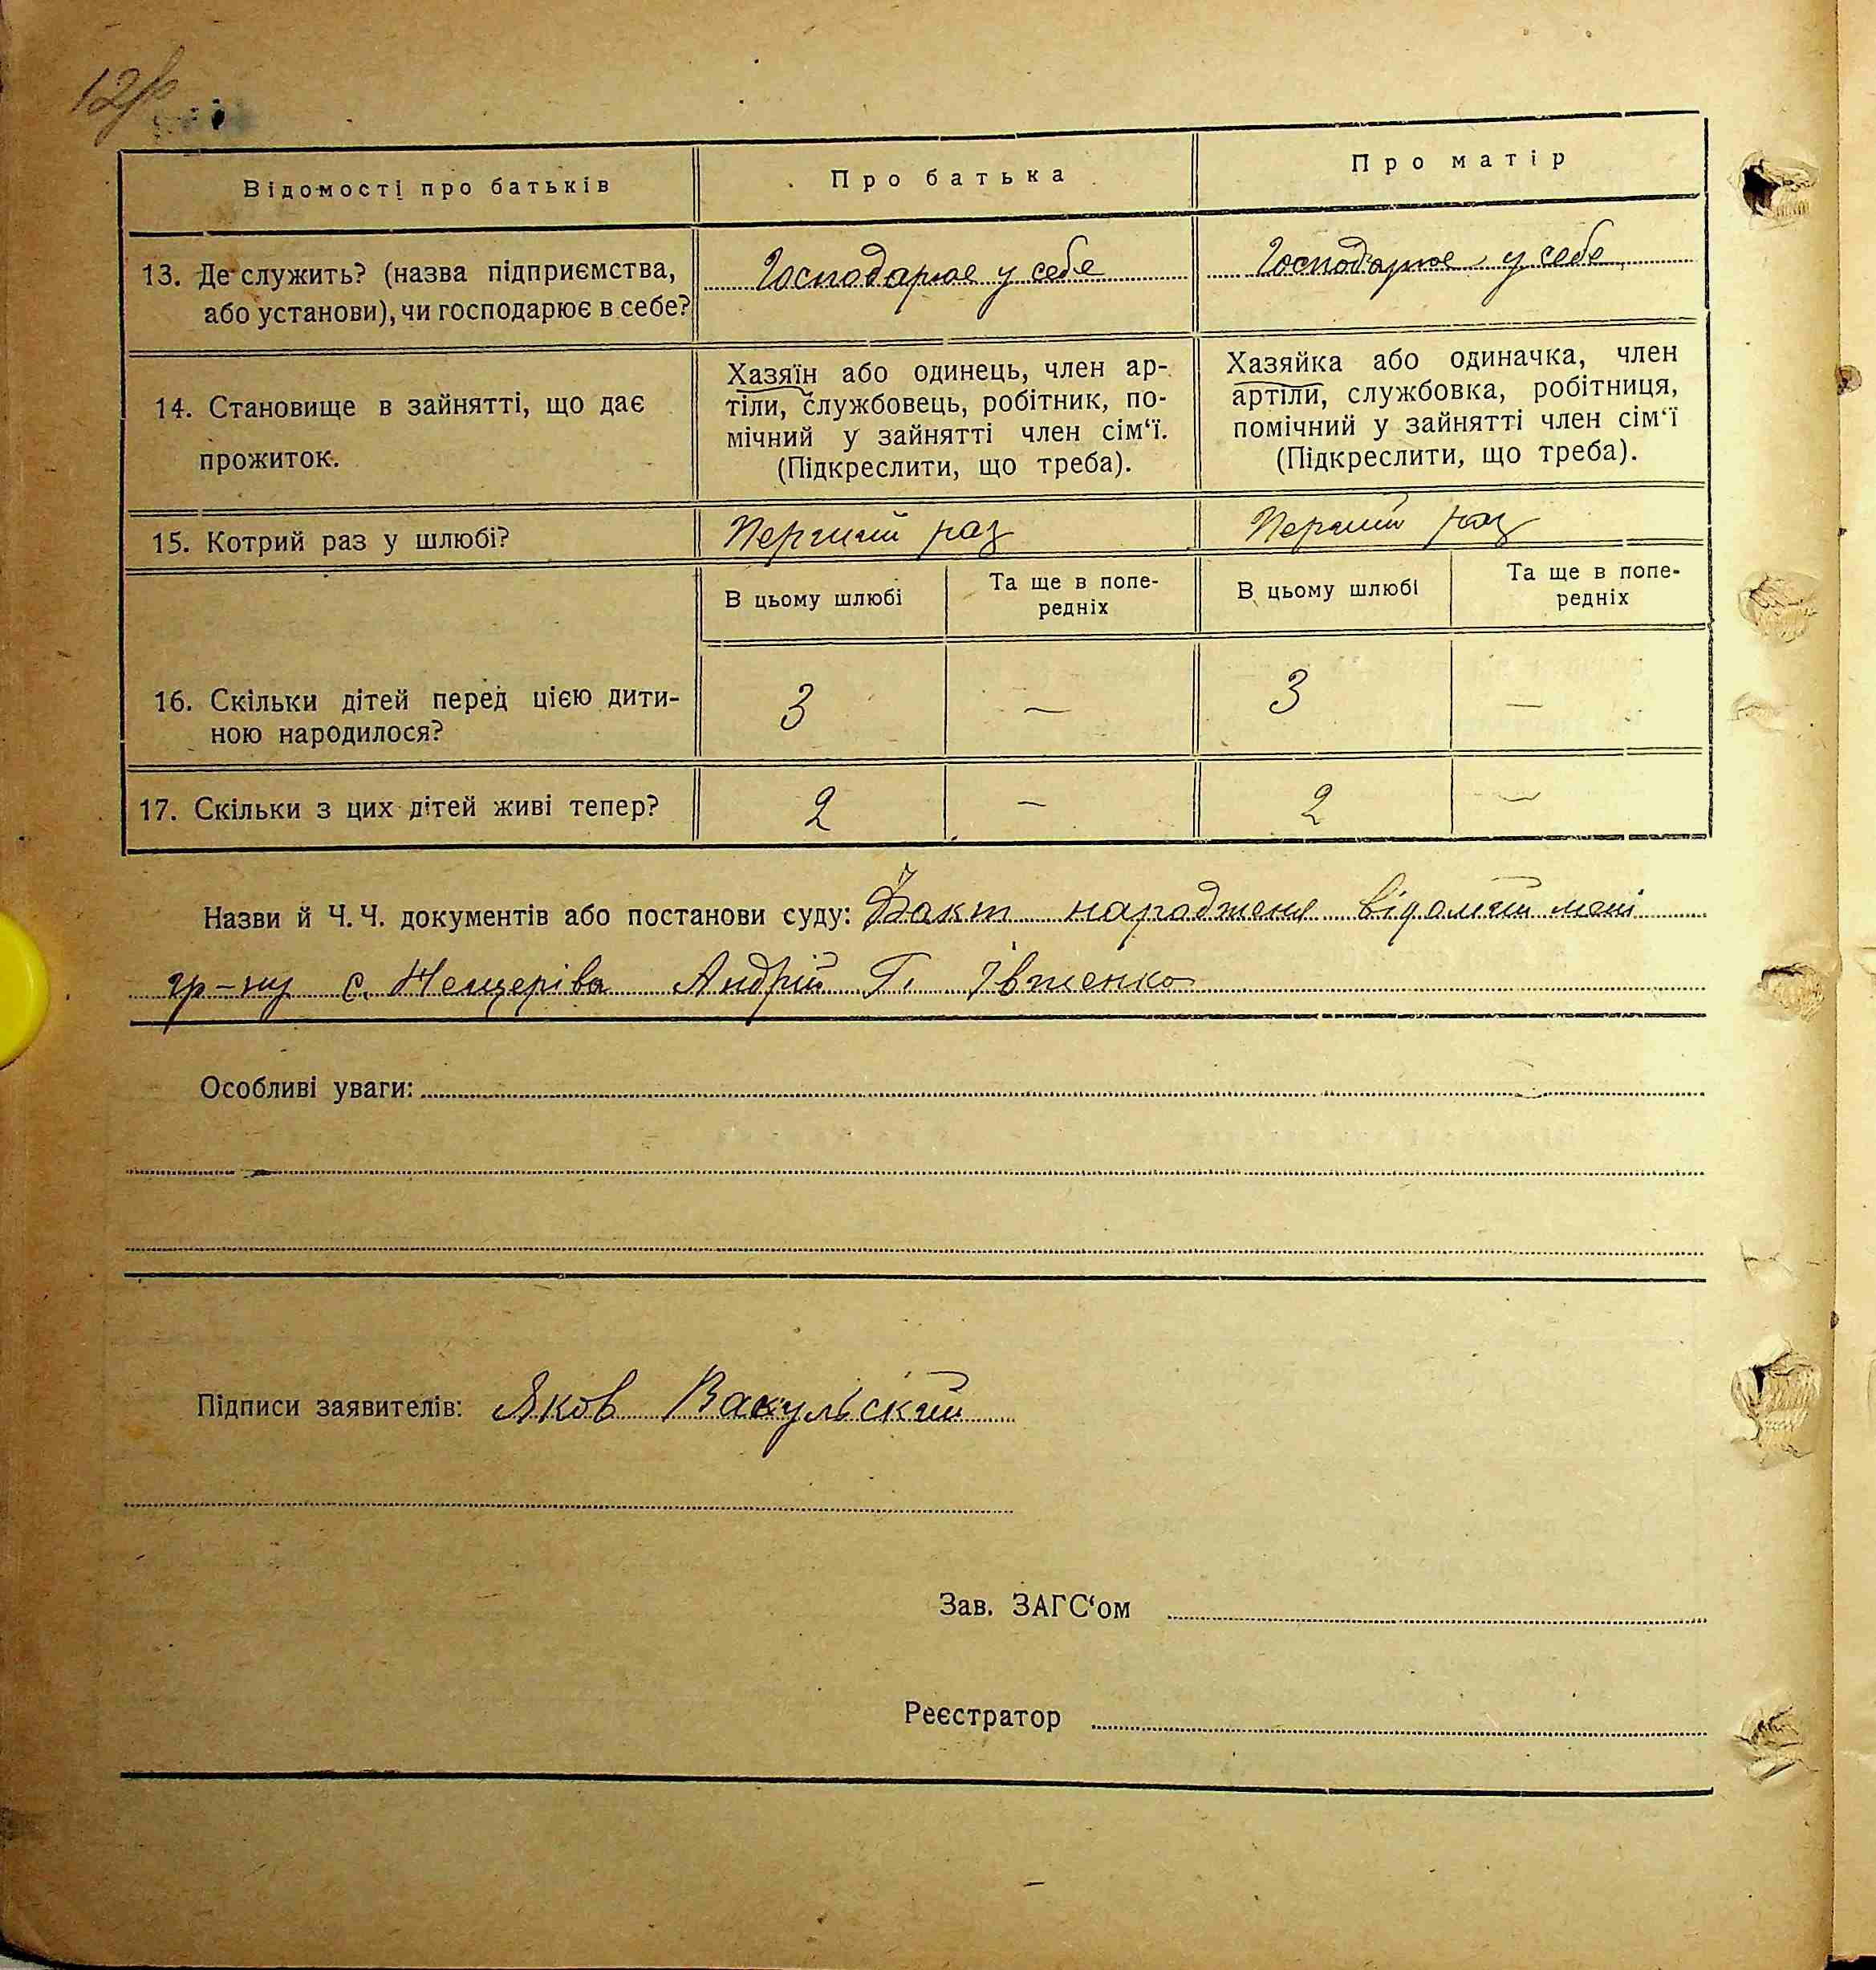 Відомості про батьків
Про батька
Про матір
13. Де служить? (назва підприємства,
або установи), чи господарює в себе?
Господарює у себе
Господарює у себе
14. Становище в зайнятті, що дає
прожиток.
Хазяїн або одинець, член ар-
тіли, службовець, робітник, по-
мічний у зайнятті член сім‘ї.
(Підкреслити, що треба).
Хазяйка або одиначка, член
артіли, службовка, робітниця,
помічний у зайнятті член сім‘ї
(Підкреслити, що треба).
15. Котрий раз у шлюбі?
Перший раз
Перший раз
В цьому шлюбі
Та ще в попе-
редніх
В цьому шлюбі
Та ще в попе-
редніх
16. Скільки дітей перед цією дити-
ною народилося?
3
—
3
—
17. Скільки з цих дітей живі тепер?
2
—
2
—
Назви й Ч. Ч. документів або постанови суду: Факт народженя відомий мені
гр-ну с. Нещерівa Андрій Г. Івженко
Особливі уваги:
Підписи заявителів: Яков Вакульський
Зав. ЗАГС‘ом
Реєстратор